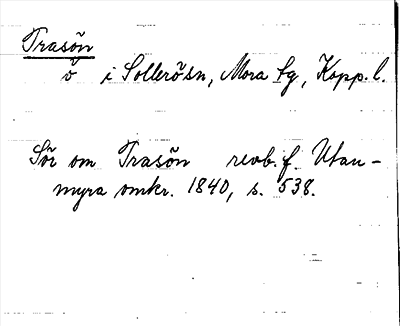 Trasön
ö i Sollerösn, Mora sg, Kopp. l.
Sör om Trasön revb. f. Utan-
myra omkr. 1840, s. 538.